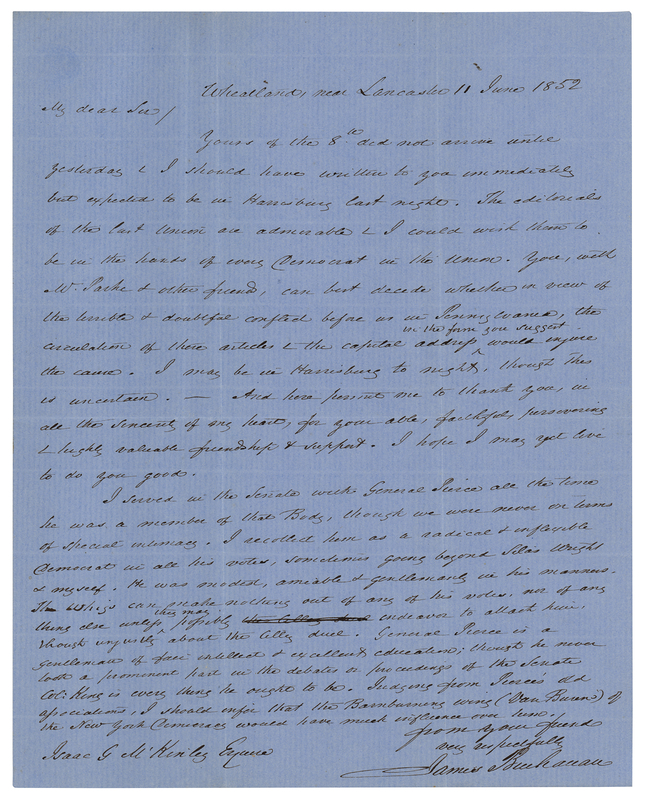 Wheatland, near Lancaster 11 June 1852
My dear Sir/
Yours of the 8th did not arrive until
yesterday & I should have written to you immediately
but expected to be in Harrisburg last night. The editorials
of the last Union are admirable & I could wish them to
be in the hands of every Democrat in the Union. You, with
Mr. Parke & other friends, can best decide whether in view of
the terrible & doubtful conflict before us in Pennsylvania, the
in the form you suggest
circulation of these articles & the capital address would injure
the cause. I may be in Harrisburg to night, though this
is uncertain. — And here permit me to thank you, in
all the sincerity of my heart, for your able, faithful, persevering
& highly valuable friendship & support. I hope I may yet live
to do you good.
I served in the Senate with General Pierce all the time
he was a member of that Body, though we were never on terms
of special intimacy. I recollect him as a radical & inflexible
Democrat in all his votes, sometimes going beyond Silas Wright
& myself. He was modest, amiable & gentlemanly in his manners.
The Whigs can make nothing out of any of his votes, nor of any
they may
thing else unless possibly the Cilley duel endeavor to attack him,
though unjustly about the Cilley duel. General Pierce is a
gentleman of fair intellect & excellent education; though he never
took a prominent part in the debates or proceedings of the Senate
Col: King is every thing he ought to be. Judging from Pierce's old
associations, I should infer that the Barnburning wing (Van Buren's) of
the New York Democracy would have much influence over him.
from your friend
very respectfully
James Buchanan
Isaac G McKinley Esquire